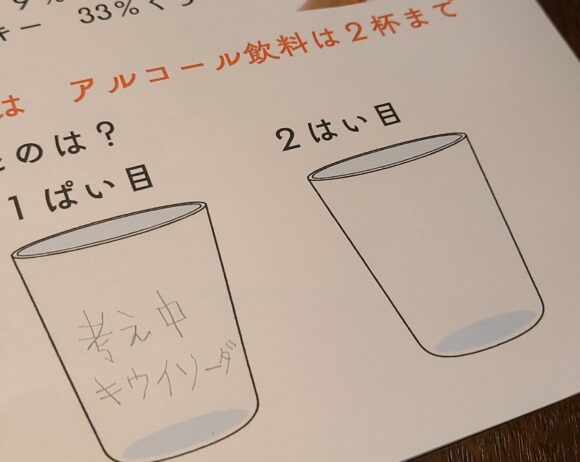 キー 33%くら
は アルコール飲料は2杯まで
のは?
1ぱい目
2はい目
考え中
キウイソーダ